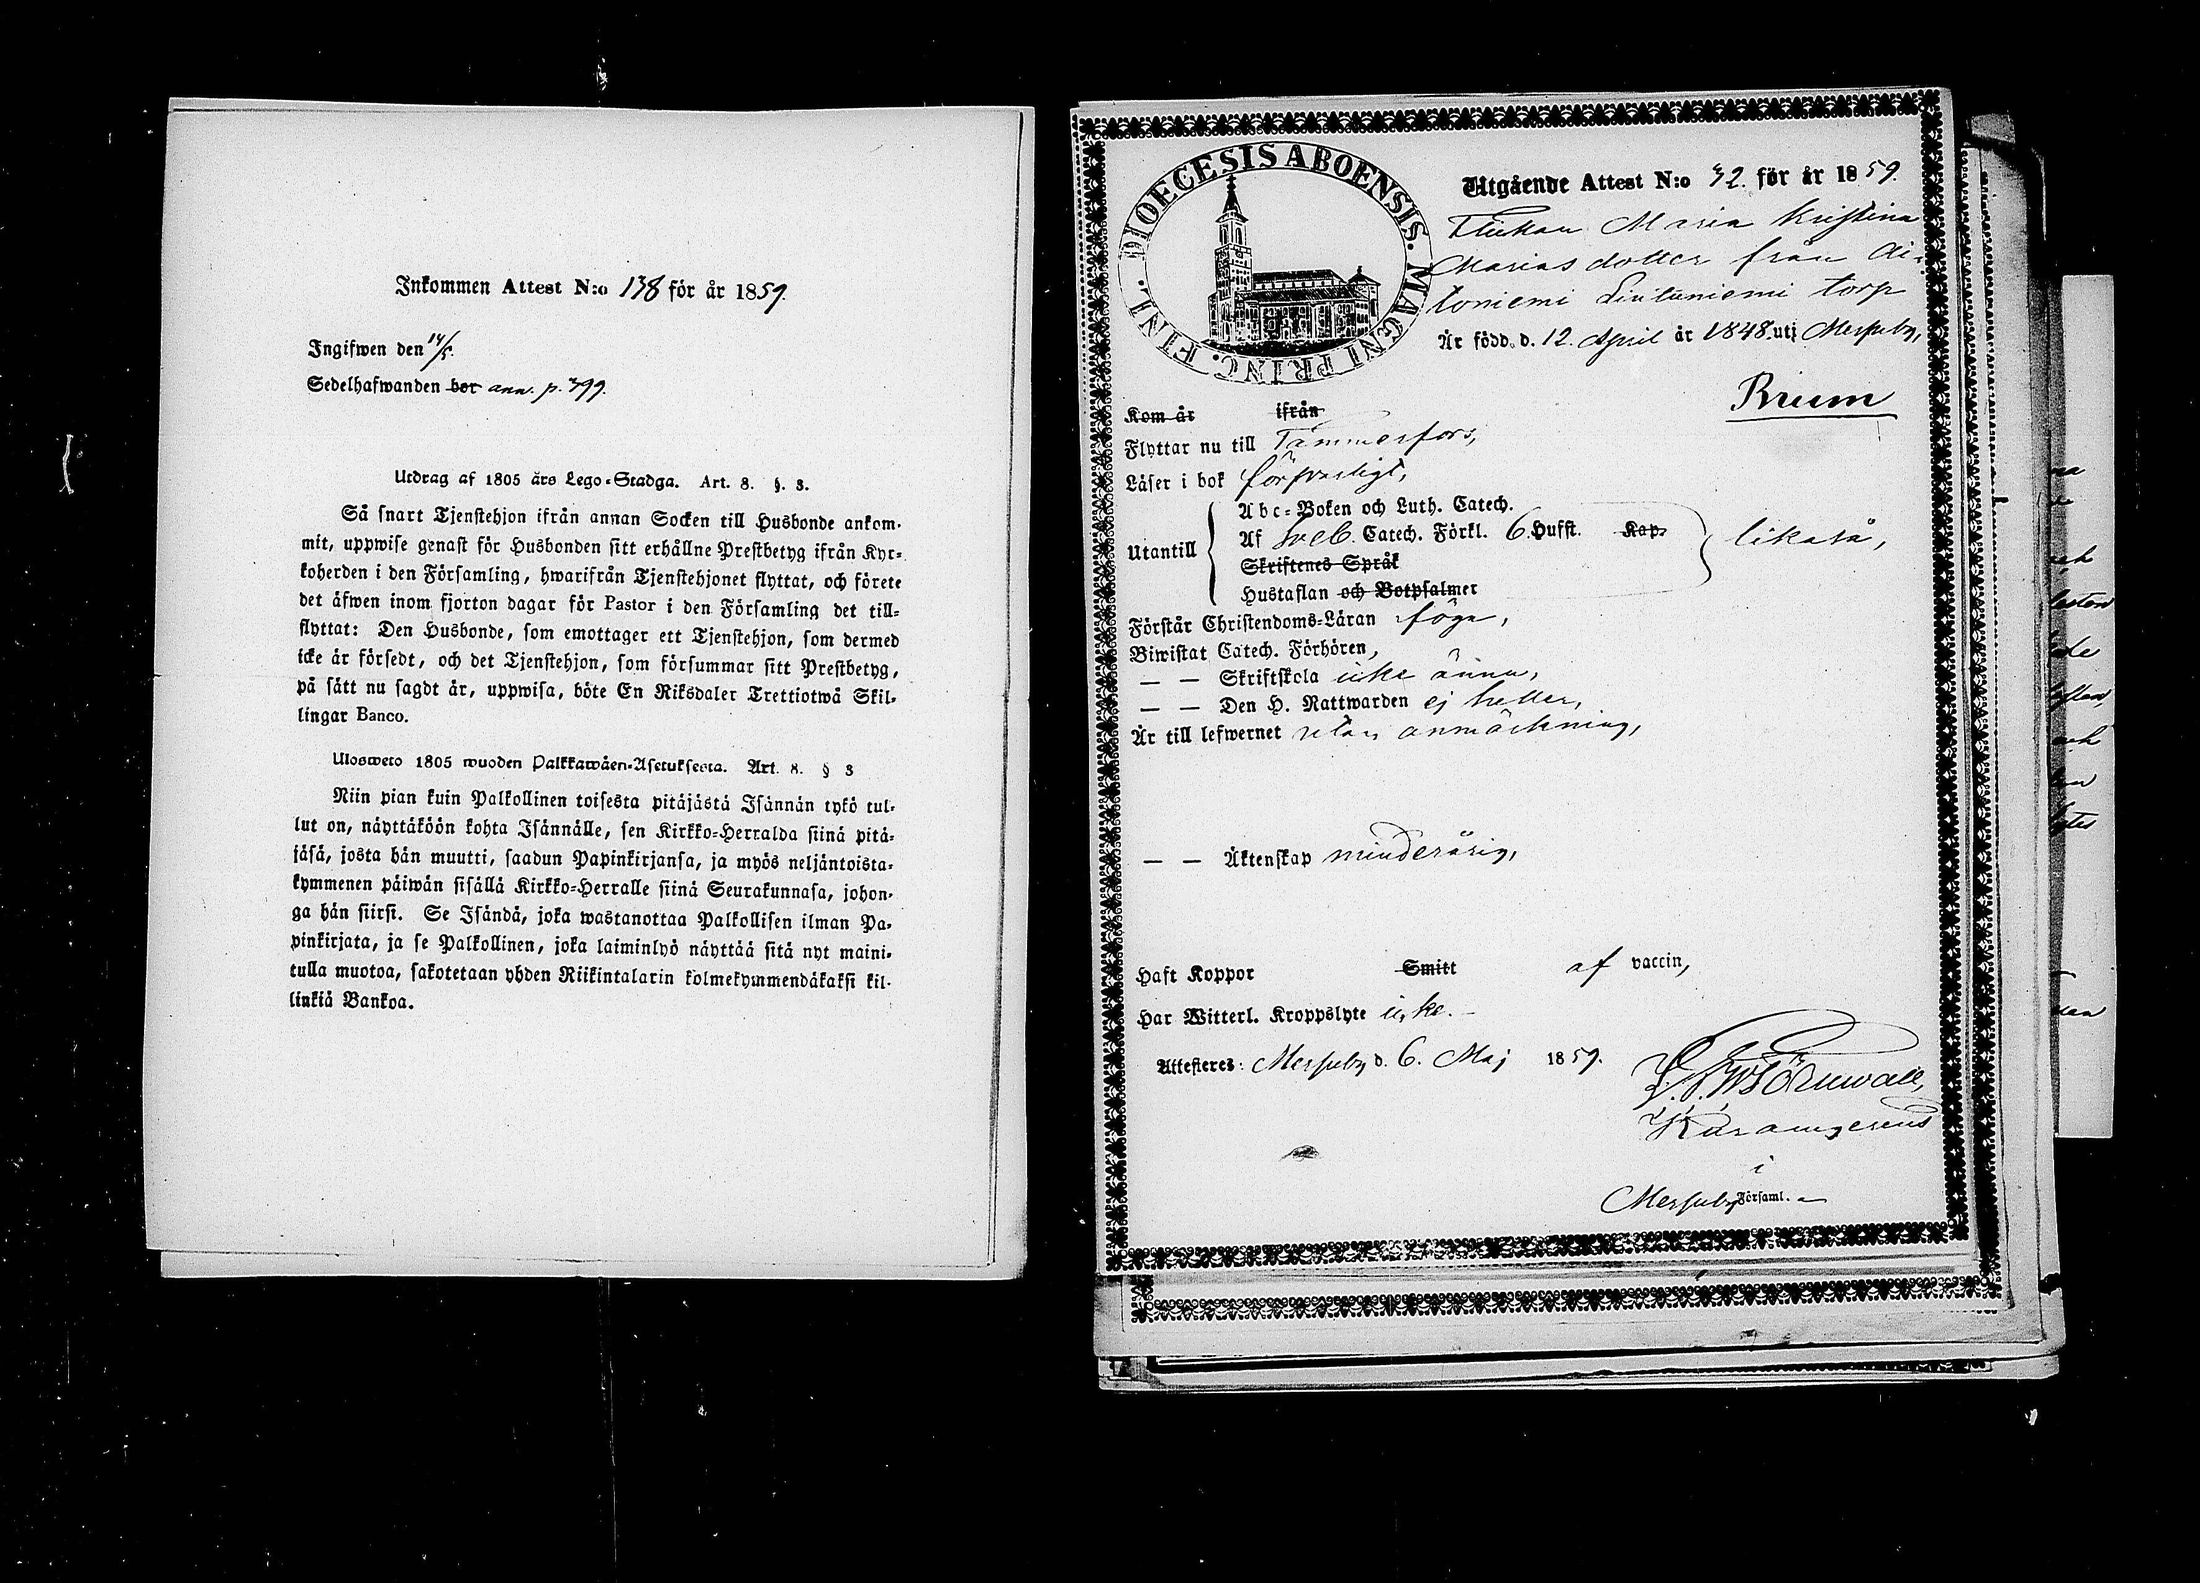 Inkommen Attest N:o 138 för år 1859.
Ingifwen den 14/5.
Sedelhafwanden bor ann. p. 399.
Utdrag af 1805 års Lego-Stadga. Art. 8. §. 3.
Så snart Tjenstehjon ifrån annan Socken till Husbonde ankom-
mit, uppwise genast för Husbonden sitt erhållne Prestbetyg ifrån Kyr-
koherden i den Församling, hwarifrån Tjenstehjonet flyttat, och förete
det äfwen inom fjorton dagar för Pastor i den Församling det till-
flyttat: Den Husbonde, som emottager ett Tjenstehjon, som dermed
icke är försedt, och det Tjenstehjon, som försummar sitt Prestbetyg,
på sätt nu sagdt är, uppwisa, böte En Riksdaler Trettiotwå Skil-
lingar Banco.
Ulosweto 1805 wuoden Palkkawäen-Asetuksesta. Art. 8. § 3
Niin pian kuin Palkollinen toisesta pitäjästä Isännän tykö tul-
lut on, näyttäköön kohta Isännälle, sen Kirkko-Herralda siinä pitä-
jäsä, josta hän muutti, saadun Papinkirjansa, ja myös neljäntoista-
kymmenen päiwän sisällä Kirkko-Herralle siinä Seurakunnasa, johon-
ga hän siirsi. Se Isändä, joka wastanottaa Palkollisen ilman Pa-
pinkirjata, ja se Palkollinen, joka laiminlyö näyttää sitä nyt maini-
tulla muotoa, sakotetaan yhden Riikintalarin kolmekymmendäkaksi kil-
linkiä Bankoa.
DIOECESIS ABOENSIS. MAGNI PRINC. FINL.
Utgående Attest N:o 32. för år 1859.
Flickan Maria Kristina
Mariasdotter från Ai-
toniemi Liutuniemi torp
Är född d. 12. April år 1848 uti Messuby,
Kom år ifrån
Flyttar nu till Tammerfors,
Läser i bok försvarligt,
Abc-Boken och Luth. Catech.
Utantill Af Sveb. Catech. Förkl. 6. Hufst. Kap. likaså,
Skriftenes Språk
Hustaflan och Botpsalmer
Förstår Christendoms-Läran föga,
Biwistat Catech. Förhören,
— — Skriftskola icke ännu,
— — Den H. Nattwarden ej heller,
Är till lefwernet utan anmärkning,
— — Äktenskap minderårig,
Haft Koppor Smitt af vaccin,
Har Witterl. Kroppslyte icke. –
Attesteres: Messuby d. 6. Maj 1859.
i
Messuby Församl. –